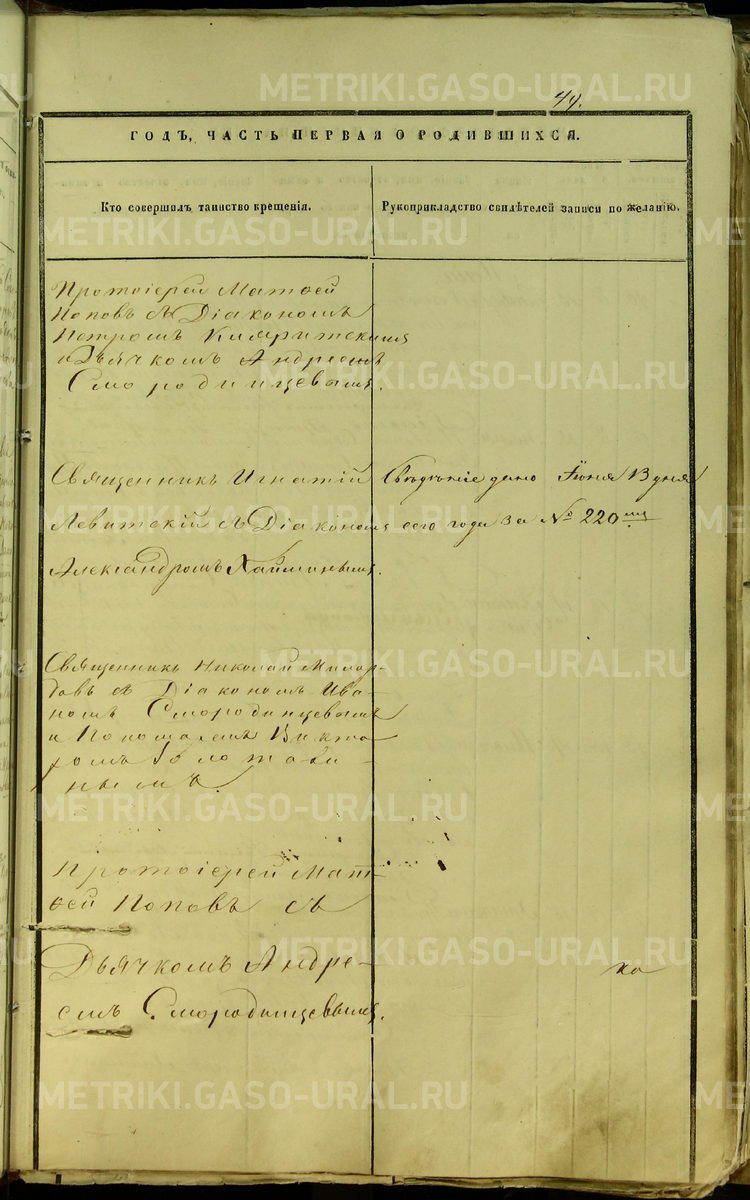 METRIKI.GASO-URAL.RU
44.
ГОДЪ, ЧАСТЬ ПЕРВАЯ О РОДИВШИХСЯ.
Кто совершилъ таинство крещенія.
Рукоприкладство свидѣтелей записи по желанію.
METRIKI.GASO-URAL.RU
Протоіерей Матѳей
Поповъ съ Діакономъ
Петромъ
и Дьячкомъ Андреемъ
Смородинцевымъ.
METRIKI.GASO-URAL.RU
Священникъ Игнатій
Левитскій съ Діакономъ
Александромъ Хайминымъ.
Свѣдѣніе дано Іюня 13 дня
сего года за № 220мъ
METRIKI.GASO-URAL.RU
Священникъ Николай Милор-
довъ съ Діакономъ Ива-
номъ Смородинцевымъ
и Пономаремъ Викто-
ромъ
нымъ.
METRIKI.GASO-URAL.RU
Протоіерей Мат-
ѳей Поповъ съ
Дьячкомъ Андре-
емъ Смородинцевымъ.
METRIKI.GASO-URAL.RU
METRIKI.GASO-URAL.RU